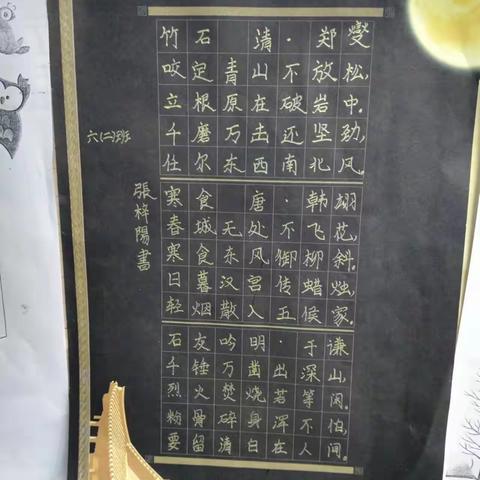 竹石 清·郑燮
咬定青山不放松,
立根原在破岩中.
千磨万击还坚劲,
任尔东西南北风.
寒食 唐·韩翃
春城无处不飞花,
寒食东风御柳斜.
日暮汉宫传蜡烛,
轻烟散入五侯家.
石灰吟 明·于谦
千锤万凿出深山,
烈火焚烧若等闲.
粉骨碎身浑不怕,
要留清白在人间.
六(二)班
張梓陽書